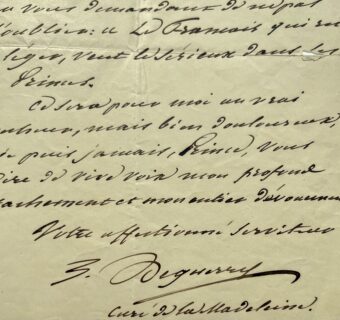 vous demandant de ne pas
oublier: « Le Français qui est
léger, veut le sérieux dans les
Princes.
Ce sera pour moi un vrai
, mais bien douloureux,
je puis jamais, Prince, vous
dire de vive voix mon profond
attachement et mon entier dévouement
Votre affectionné serviteur
Deguerry
curé de la Madeleine.